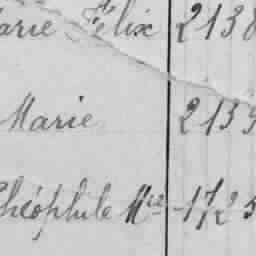 arie Félix 2138
Marie 2139
Théophile Mce 1725